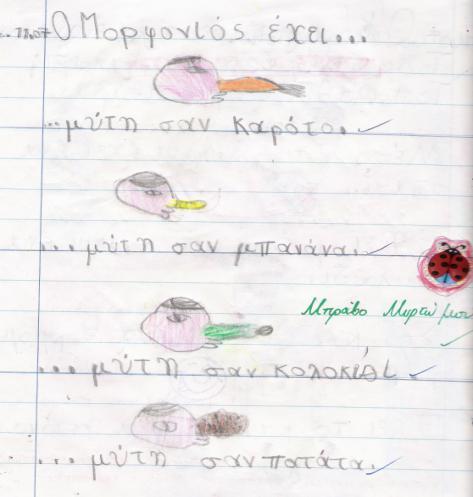 Ο Μορφονιός έχει...
...μύτη σαν καρότο.
...μύτη σαν μπανάνα.
Μπράβο Μυρτώ μου
...μύτη σαν κολοκιθι.
...μύτη σαν πατάτα.